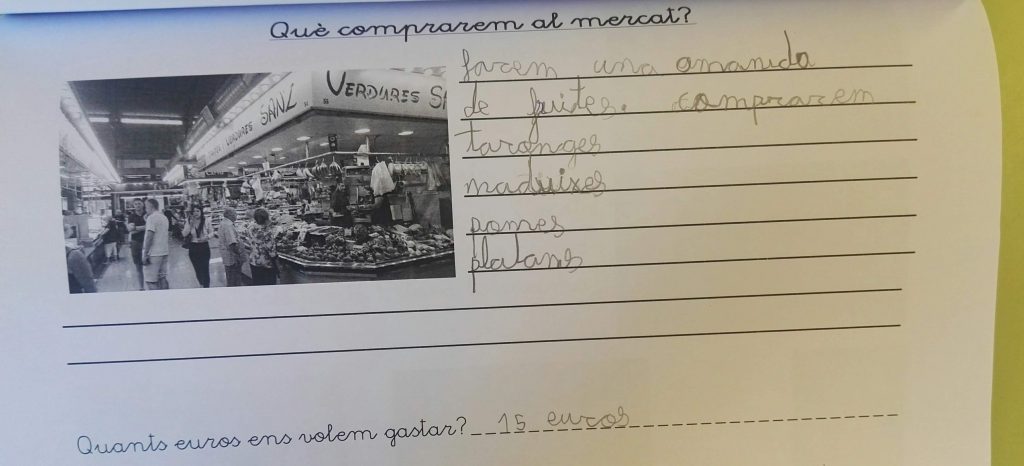 Què comprarem al mercat?
farem una amanida
de fuites. comprarem
taronges
maduixes
pomes
platans
VERDURES SANZ
VERDURES S
Quants euros ens volem gastar? 15 euros